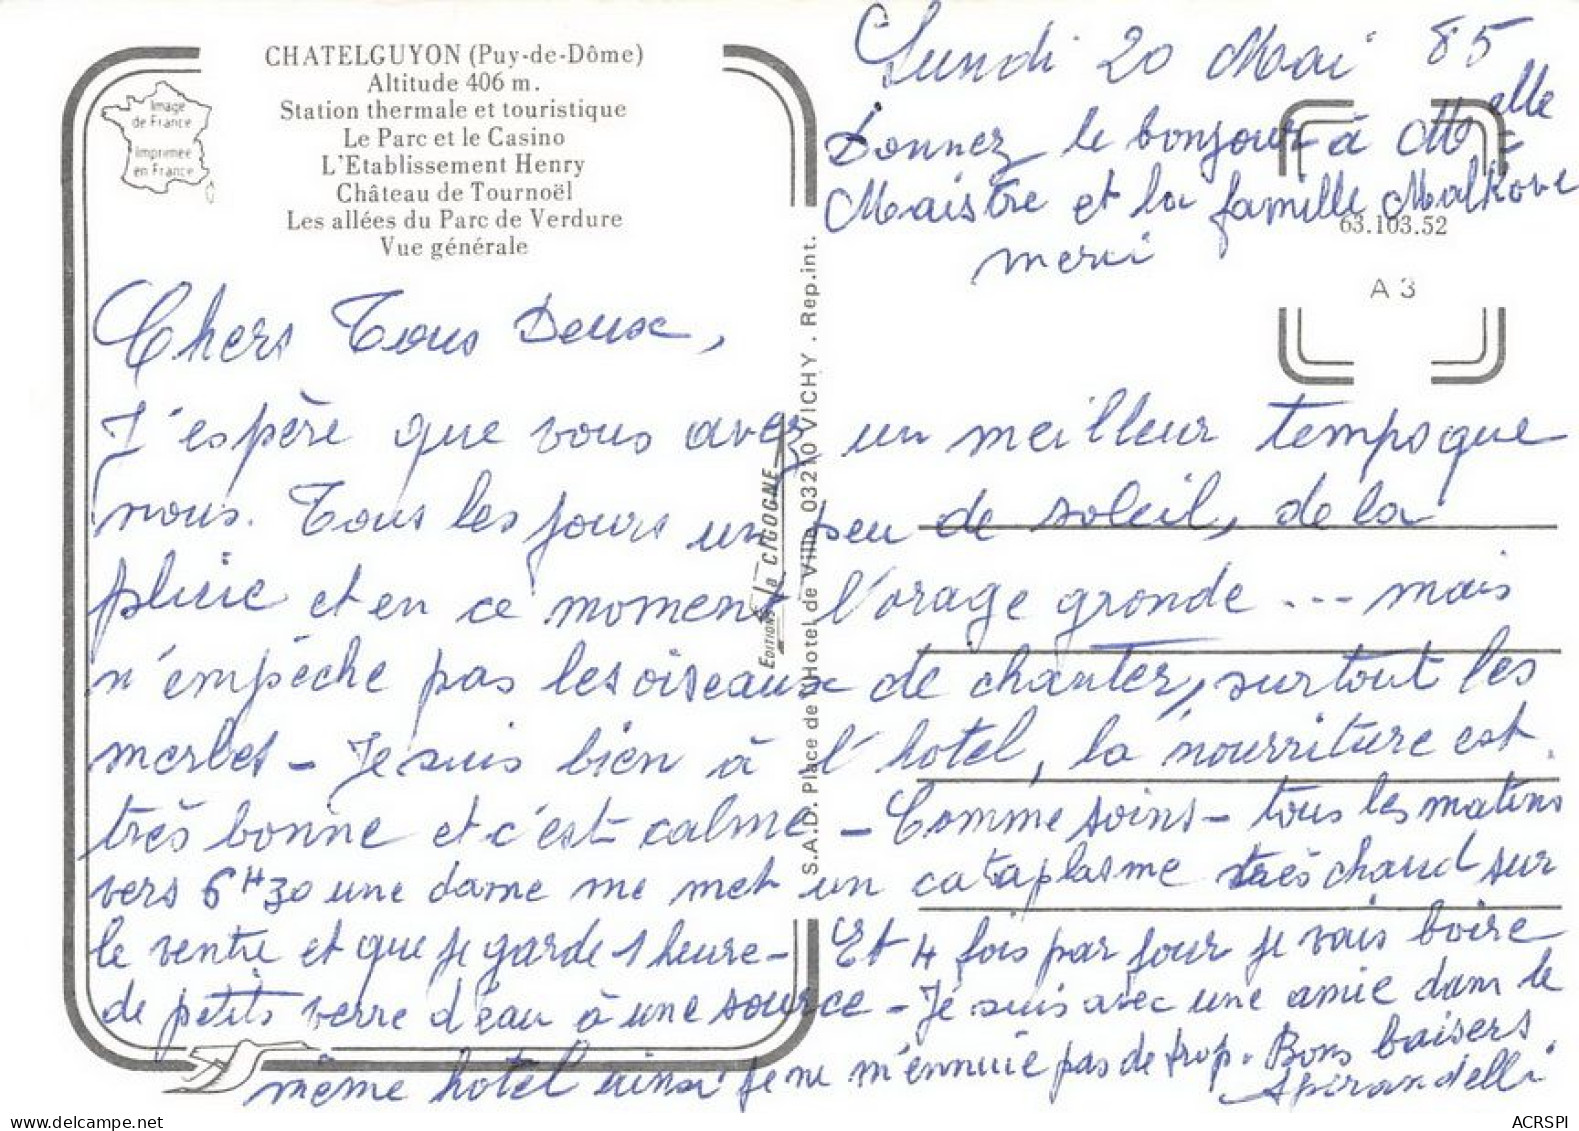 CHATELGUYON (Puy-de-Dôme)
Altitude 406 m.
Station thermale et touristique
Le Parc et le Casino
L'Etablissement Henry
Château de Tournoël
Les allées du Parc de Verdure
Vue générale
Image
de France
imprimée
en France
Lundi 20 Mai 85
Donnez le bonjour à Melle
Maistre et la famille Malkove
merci
63.103.52
A 3
Chers Tous Deux,
J'espère que vous avez un meilleur temps que
nous. Tous les jours un peu de soleil, de la
pluie et en ce moment l'orage gronde... mais
n'empêche pas les oiseaux de chanter, surtout les
merles - Je suis bien à l'hotel, la nourriture est
très bonne et c'est calme - Comme soins - tous les matins
vers 6H30 une dame me met un cataplasme très chaud sur
le ventre et que je garde 1 heure - Et 4 fois par jour je vais boire
de petits verre d'eau à une source - Je suis avec une amie dans le
même hotel ainsi je ne m'ennuie pas de trop. Bons baisers.
EDITIONS la CIGOGNE
S.A.D. Place de l'Hotel de Ville 03210 VICHY . Rep.int.
ACRSPI